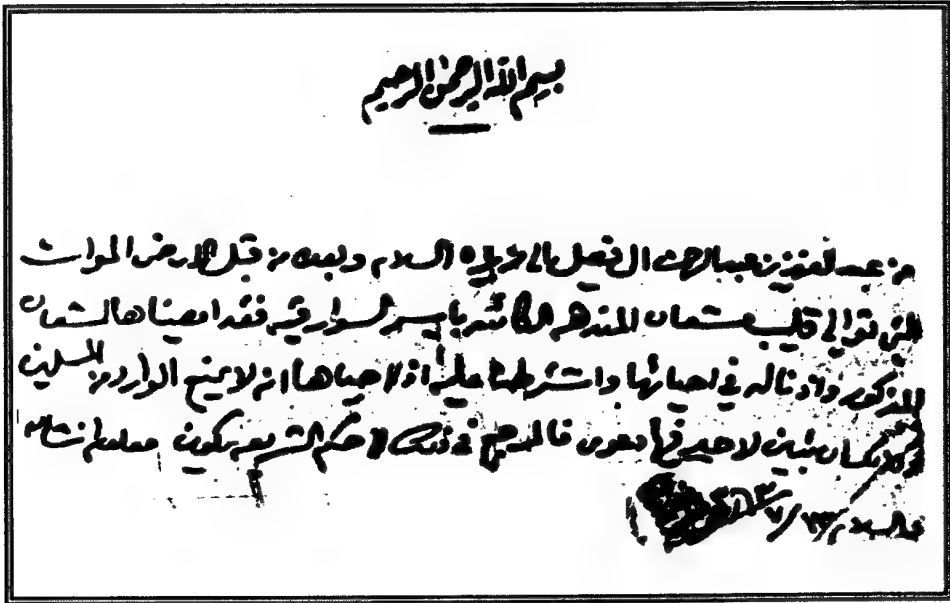 بسم الله الرحمن الرحيم
من عبد العزيز بن عبدالرحمن ال فيصل الى من يراه السلام وبعد من قبل الارض الموات
التي توالي قليب شعان المندثره الكائنه باسم السوارقيه فقد امضيناها لشعان
المذكور واذناله في احيائها واشترطنا عليه اذا احياها انه لا يمنح الوارد من المسلمين
كان تبين لاحد فيها دعوى فالمرجع في ذلك لاحكم الشريعه يكون معلوم انشاله
والسلام ٢٣/٧